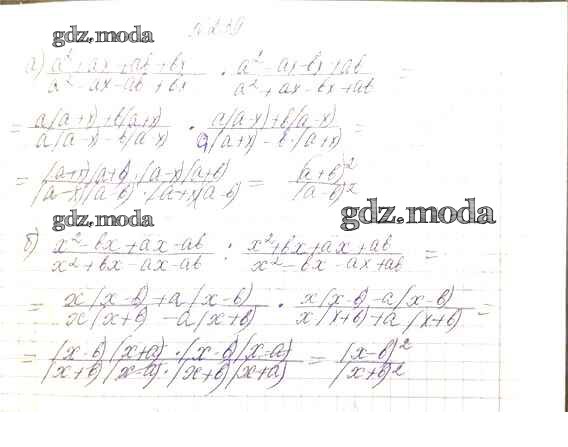 gdz.moda
а) (a² + ax + ab + bx)/(a² - ax - ab + bx) · (a² - ax - bx + ab)/(a² + ax - bx + ab) =
= (a(a+x) + b(a+x))/(a(a-x) - b(a-x)) · (a(a-x) + b(a-x))/(a(a+x) - b·(a+x)) =
= ((a+x)(a+b)·(a-x)(a+b))/((a-x)(a-b)·(a+x)(a-b)) = (a+b)²/(a-b)²
gdz.moda
gdz.moda
б) (x² - bx + ax - ab)/(x² + bx - ax - ab) : (x² + bx + ax + ab)/(x² - bx - ax + ab) =
= (x(x-b) + a(x-b))/(x(x+b) - a(x+b)) · (x(x-b) - a(x-b))/(x(x+b) + a(x+b)) =
= ((x-b)(x+a)·(x-b)(x-a))/((x+b)(x-a)·(x+b)(x+a)) = (x-b)²/(x+b)²